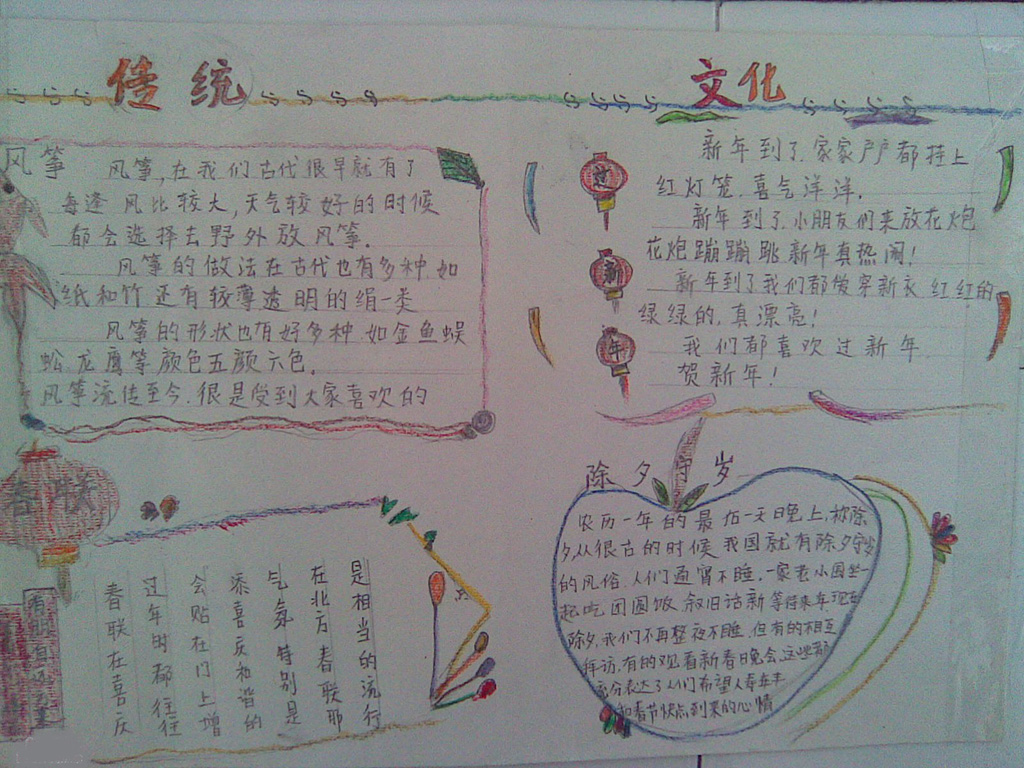 传统
文化
风筝
风筝,在我们古代很早就有了
每逢风比较大,天气较好的时候
都会选择去野外放风筝.
风筝的做法在古代也有多种.如
纸和竹还有较薄透明的绢一类
风筝的形状也有好多种如金鱼蜈
蚣龙鹰等颜色五颜六色.
风筝流传至今.很是受到大家喜欢的
过
新
年
新年到了.家家户户都挂上
红灯笼.喜气洋洋.
新年到了小朋友们来放花炮
花炮蹦蹦跳.新年真热闹!
新年到了我们都爱穿新衣红红的
绿绿的.真漂亮!
我们都喜欢过新年
贺新年!
春联
春联在喜庆
过年时都往往
会贴在门上增
添喜庆和谐的
气氛特别是
在北方春联那
是相当的流行
点
除夕守岁
农历一年的最后一天晚上,称除
夕,从很古的时候我国就有除夕守岁
的风俗.人们通宵不睡.一家老小围坐一
起吃团圆饭.叙旧话新等待来年现在
除夕,我们不再整夜不睡.但有的相互
拜访,有的观看新春晚会,这些都
充分表达了人们希望人寿年丰
和春节快点到来的心情